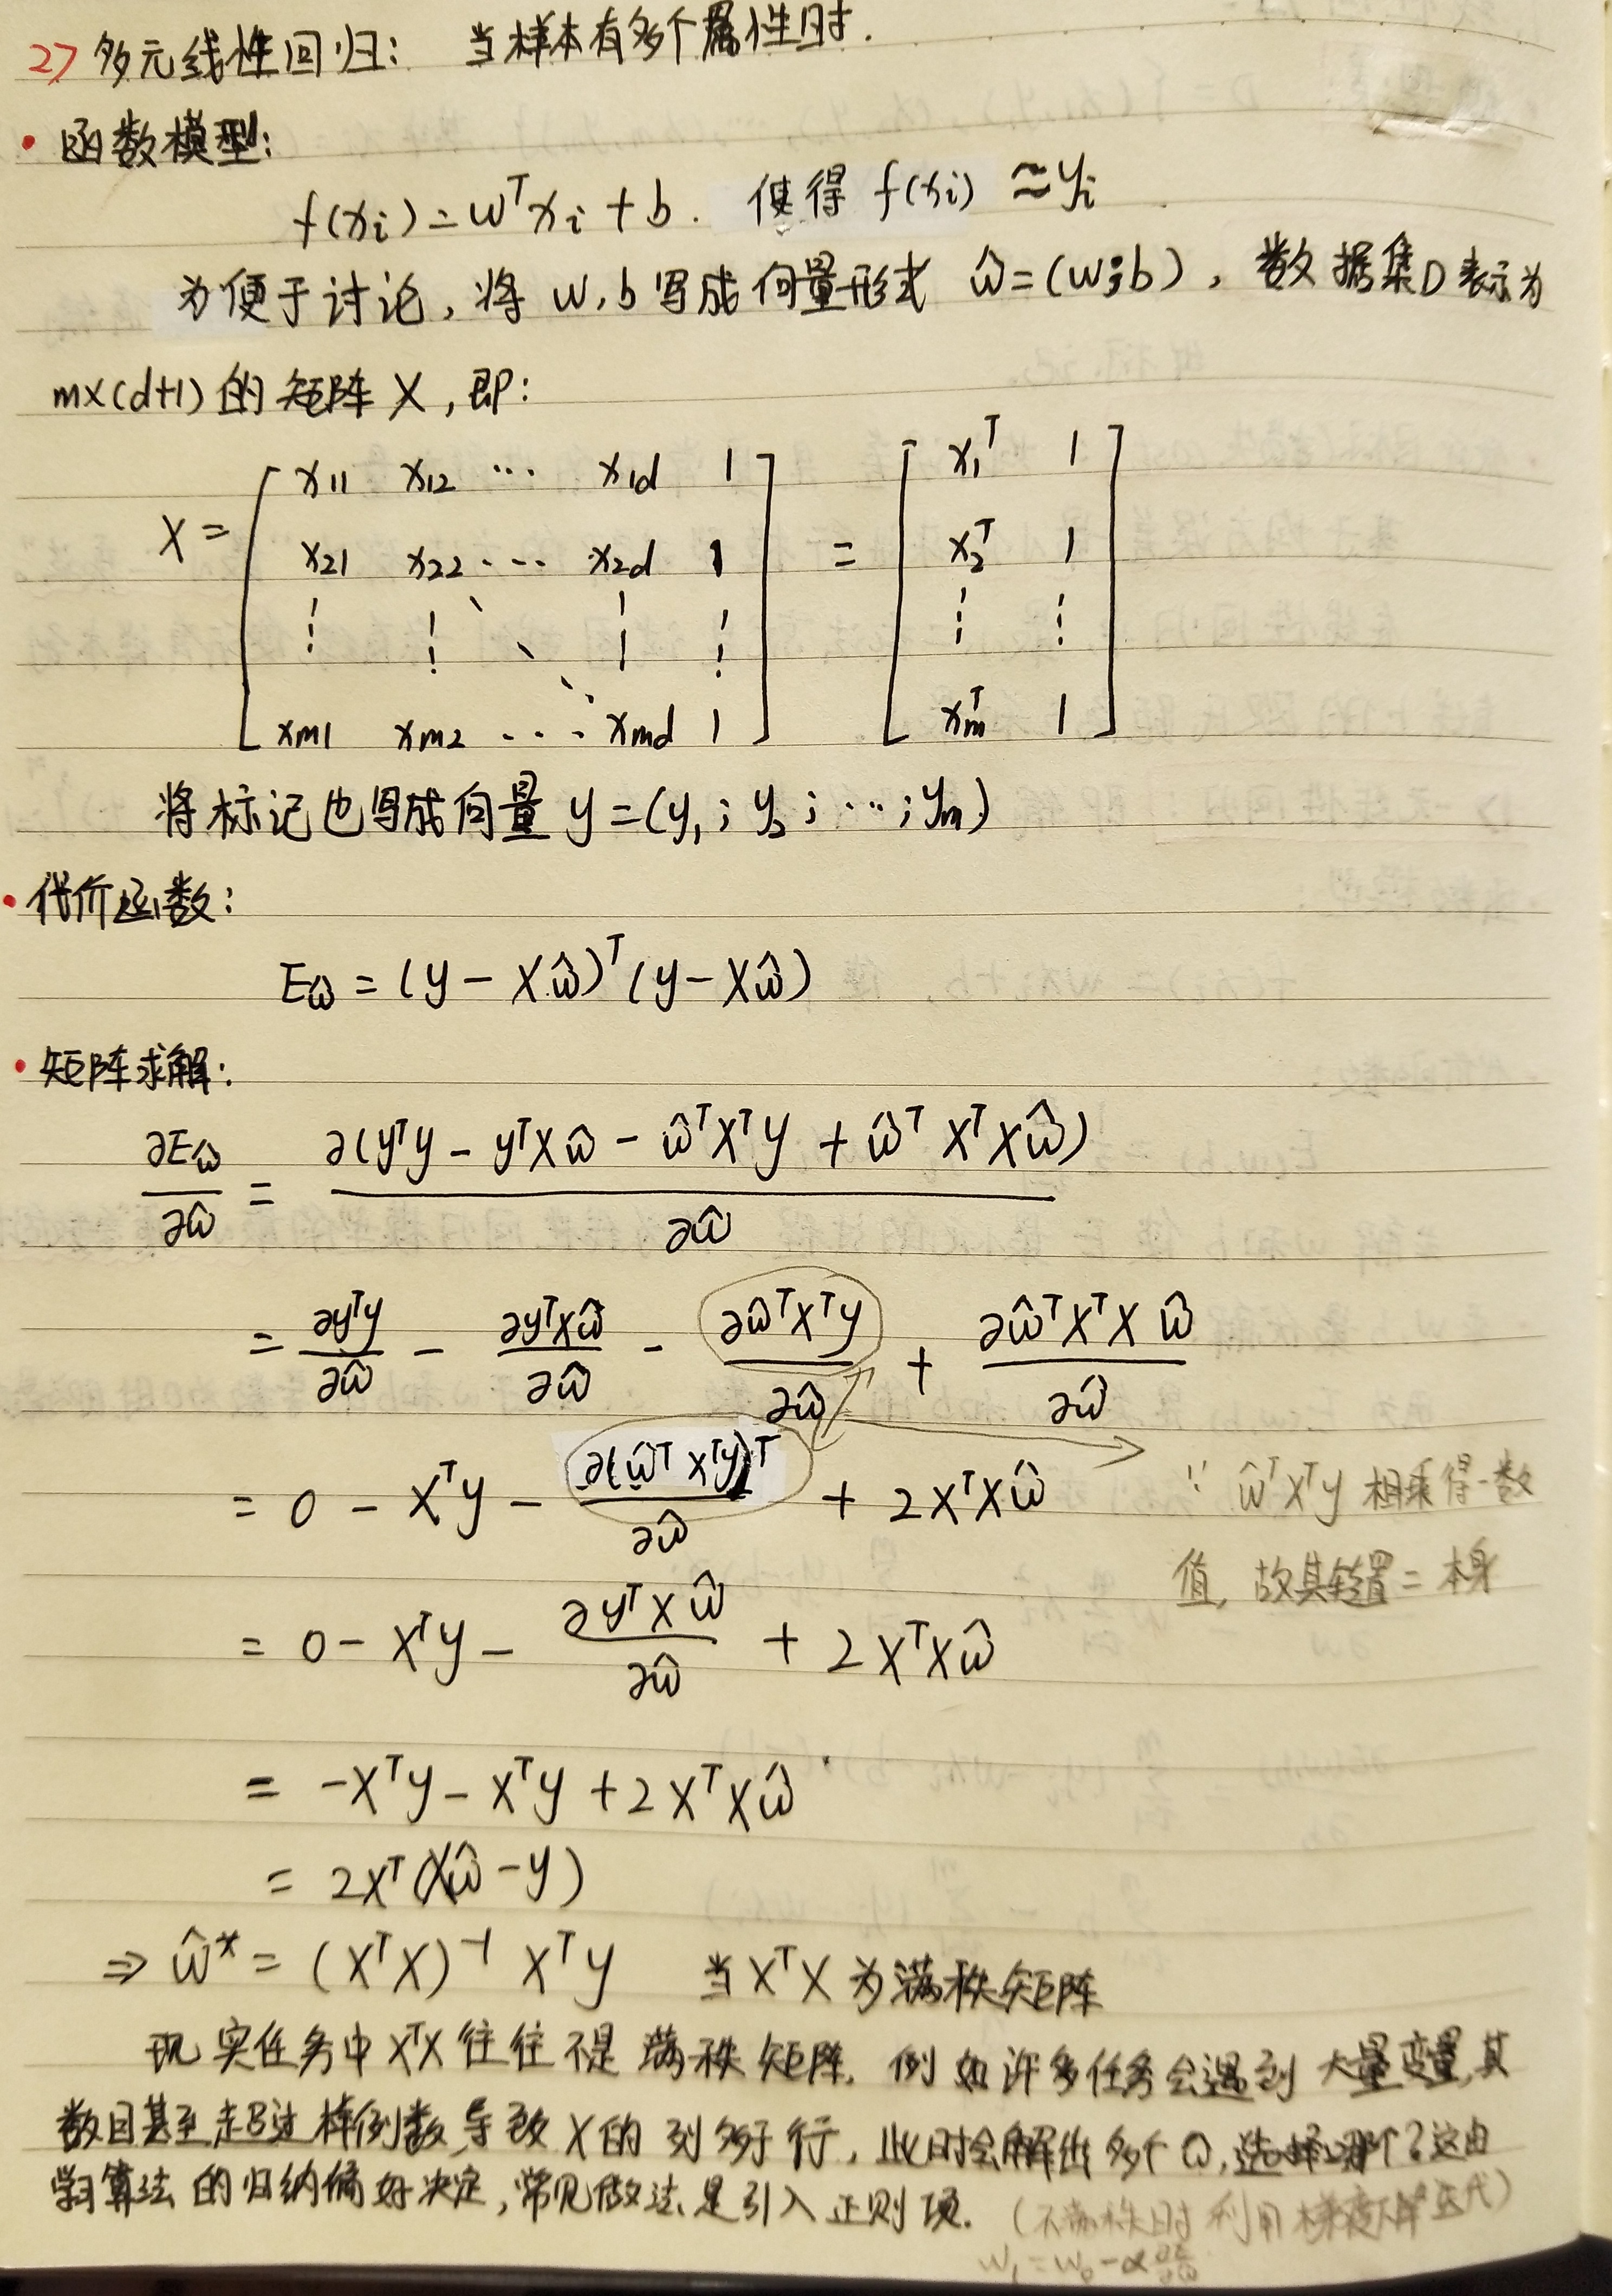 2> 多元线性回归: 当样本有多个属性时.
• 函数模型:
f(xi) = wᵀxi + b. 使得 f(xi) ≈ yi
为便于讨论, 将 w, b 写成向量形式 ŵ = (w;b), 数据集D表示为
m×(d+1) 的矩阵 X, 即:
X = [ x11 x12 ⋯ x1d 1 ] = [ x1ᵀ 1 ]
[ x21 x22 ⋯ x2d 1 ] [ x2ᵀ 1 ]
[ ⋮ ⋮ ⋱ ⋮ ⋮ ] [ ⋮ ⋮ ]
[ xm1 xm2 ⋯ xmd 1 ] [ xmᵀ 1 ]
将标记也写成向量 y = (y1; y2; ⋯; ym)
• 代价函数:
Eŵ = (y − Xŵ)ᵀ(y − Xŵ)
• 矩阵求解:
∂Eŵ/∂ŵ = ∂(yᵀy − yᵀXŵ − ŵᵀXᵀy + ŵᵀXᵀXŵ)/∂ŵ
= ∂yᵀy/∂ŵ − ∂yᵀXŵ/∂ŵ − ∂ŵᵀXᵀy/∂ŵ + ∂ŵᵀXᵀXŵ/∂ŵ
= 0 − Xᵀy − ∂(ŵᵀXᵀy)ᵀ/∂ŵ + 2XᵀXŵ ∵ ŵᵀXᵀy 相乘得一数
值, 故其转置 = 本身
= 0 − Xᵀy − ∂yᵀXŵ/∂ŵ + 2XᵀXŵ
= −Xᵀy − Xᵀy + 2XᵀXŵ
= 2Xᵀ(Xŵ − y)
⇒ ŵ* = (XᵀX)⁻¹Xᵀy 当XᵀX为满秩矩阵
现实任务中XᵀX往往不是满秩矩阵. 例如许多任务会遇到大量变量,其
数目甚至超过样例数,导致X的列多于行, 此时会解出多个ŵ,选择哪个?这由
学习算法的归纳偏好决定,常见做法是引入正则项. (不满秩时利用梯度下降迭代)
w1 = w0 − α ∂E/∂ŵ